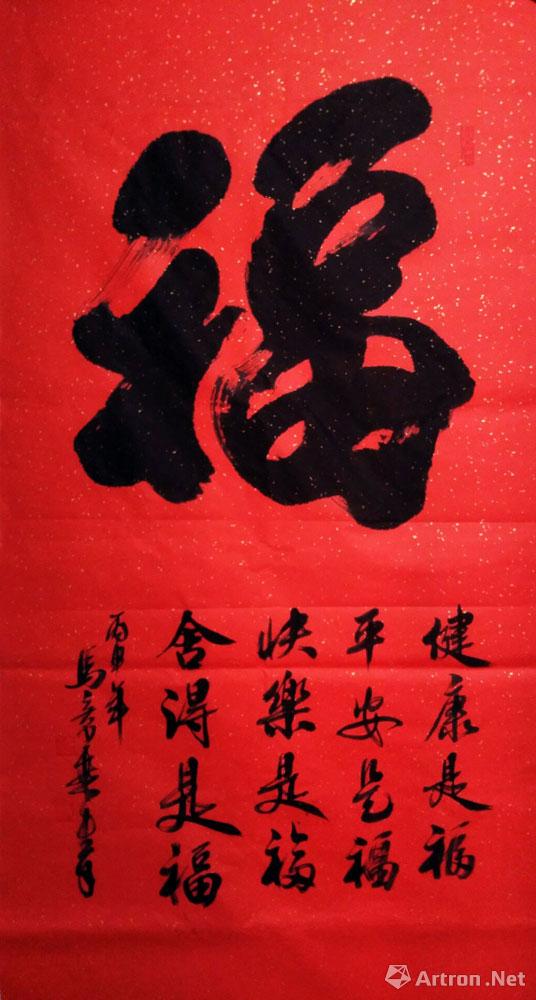 福
健康是福
平安是福
快樂是福
舍得是福
丙申年
馬
Artron.Net